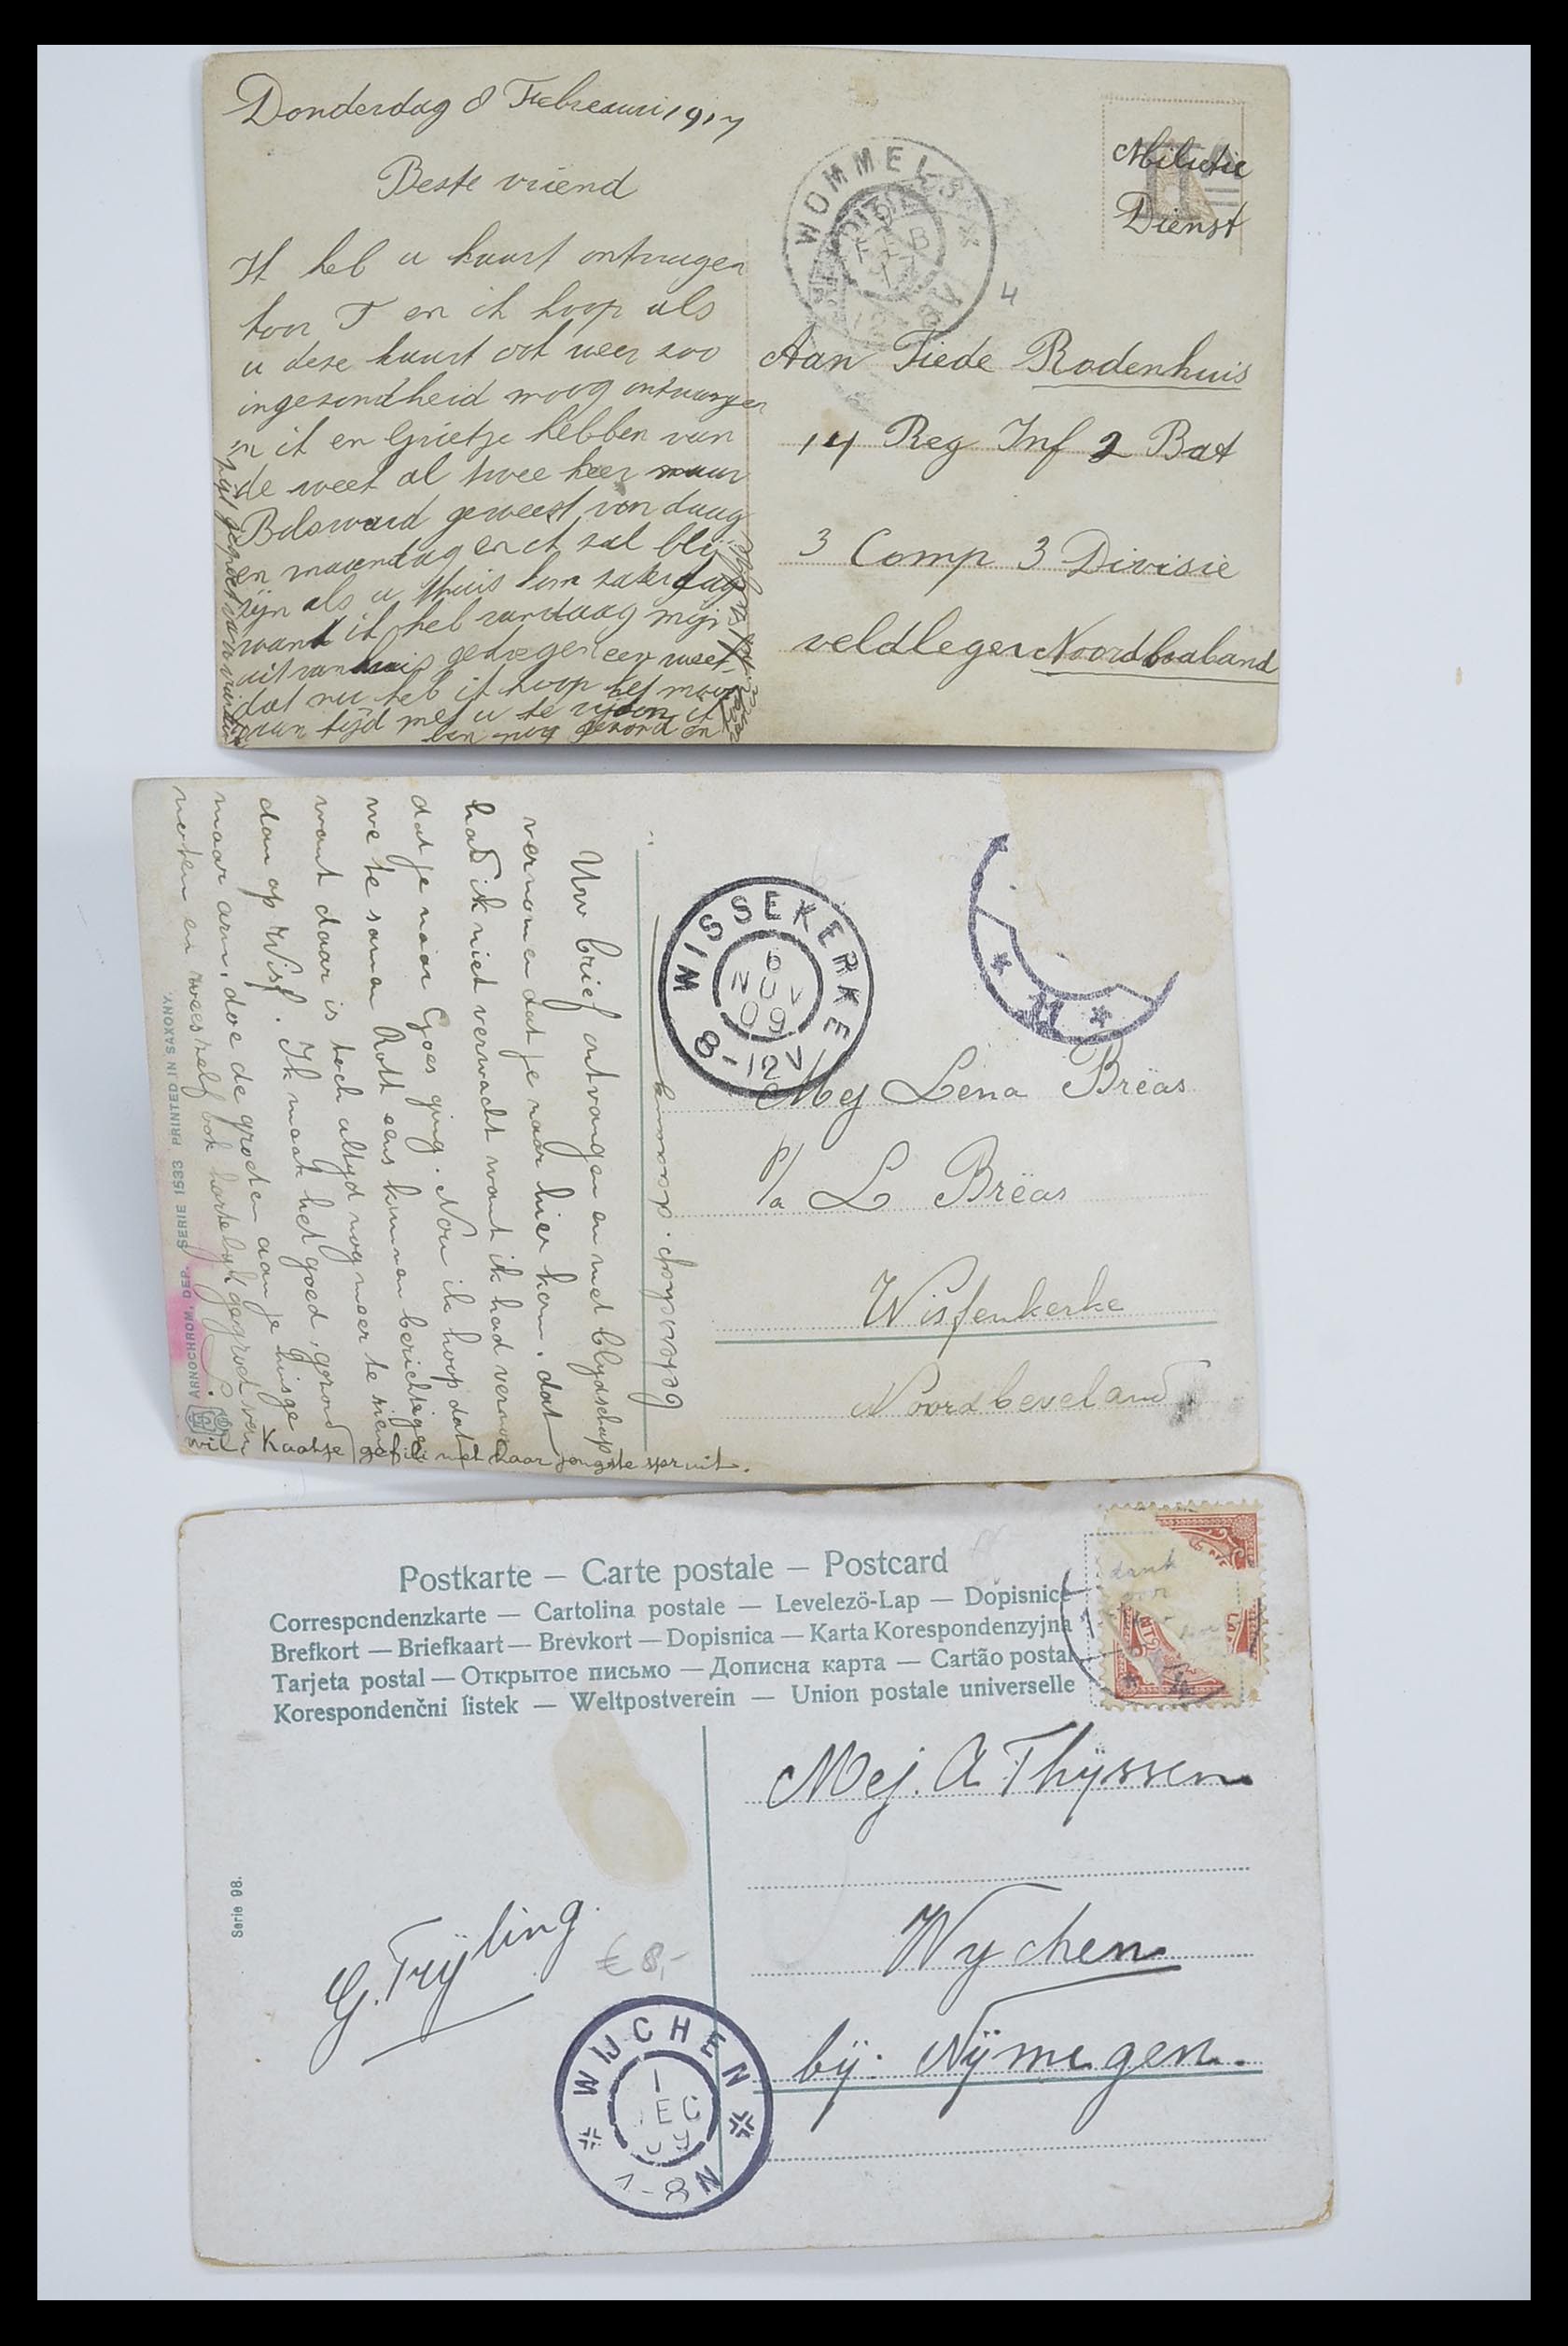 Donderdag 8 Febreauri 1917
Beste vriend
Ik heb u kaart ontvangen
voor T en ik hoop als
u deze kaart ook weer zoo
ingezondheid moog ontvangen
en ik en Grietje hebben van
de week al twee keer naar
Bolsward geweest van daag
en maandag en ik zal blij
zijn als u thuis kom zaterdag
want ik heb vandaag mijn
uit van huis gekregen een week
dat nu heb ik hoop het moo
van tijd met u te
ben nog gezond en
WOMMELS
9
FEB
17
4
Militie
Dienst
Aan Tiede Rodenhuis
14 Reg Inf 2 Bat
3 Comp 3 Divisie
veldleger Noordbraband
Uw brief ontvangen en met blydschap
vernomen dat je naar hier kom, dat
had ik niet verwacht want ik had vernom
dat je naar Goes ging. Nou ik hoop dat
we te samen Rott eens kunnen berichtigen
want daar is toch altyd nog meer te zien
dan op Wisf. Ik maak het goed, gezond
maar arm, doe de groeten aan je huisge
noten en wees zelf ook hartelyk gegroet van
Kaatje met haar jongste spruit.
ARNOCHROM, DEP. SERIE 1533 PRINTED IN SAXONY.
WISSEKERKE
6
NOV
09
8-12V
11
Mej Lena Brëas
p/a L Brëas
Wisfenkerke
Noordbeveland
Postkarte – Carte postale – Postcard
Correspondenzkarte — Cartolina postale — Levelezö-Lap — Dopisnice
Brefkort — Briefkaart — Brevkort — Dopisnica — Karta Korespondenzyjna
Tarjeta postal — Открытое письмо — Дописна карта — Cartão postal
Korespondenčni listek — Weltpostverein — Union postale universelle
dank
voor
Mej. A Thijssen
Wychen
bij: Nijmegen.
Serie 98.
G. Trijling.
€ 8,-
WIJCHEN
1
DEC
09
7-8N